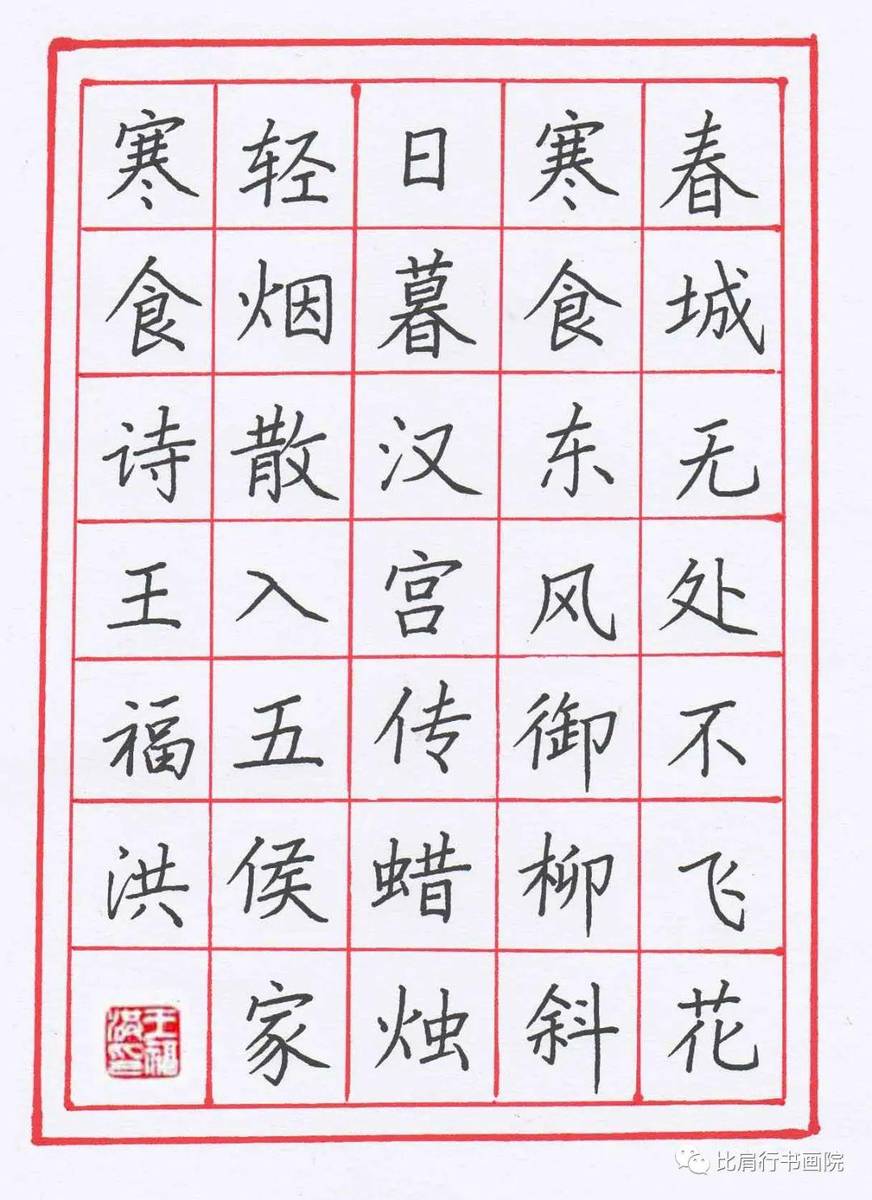 春城无处不飞花
寒食东风御柳斜
日暮汉宫传蜡烛
轻烟散入五侯家
寒食诗王福洪
王福洪印
比肩行书画院